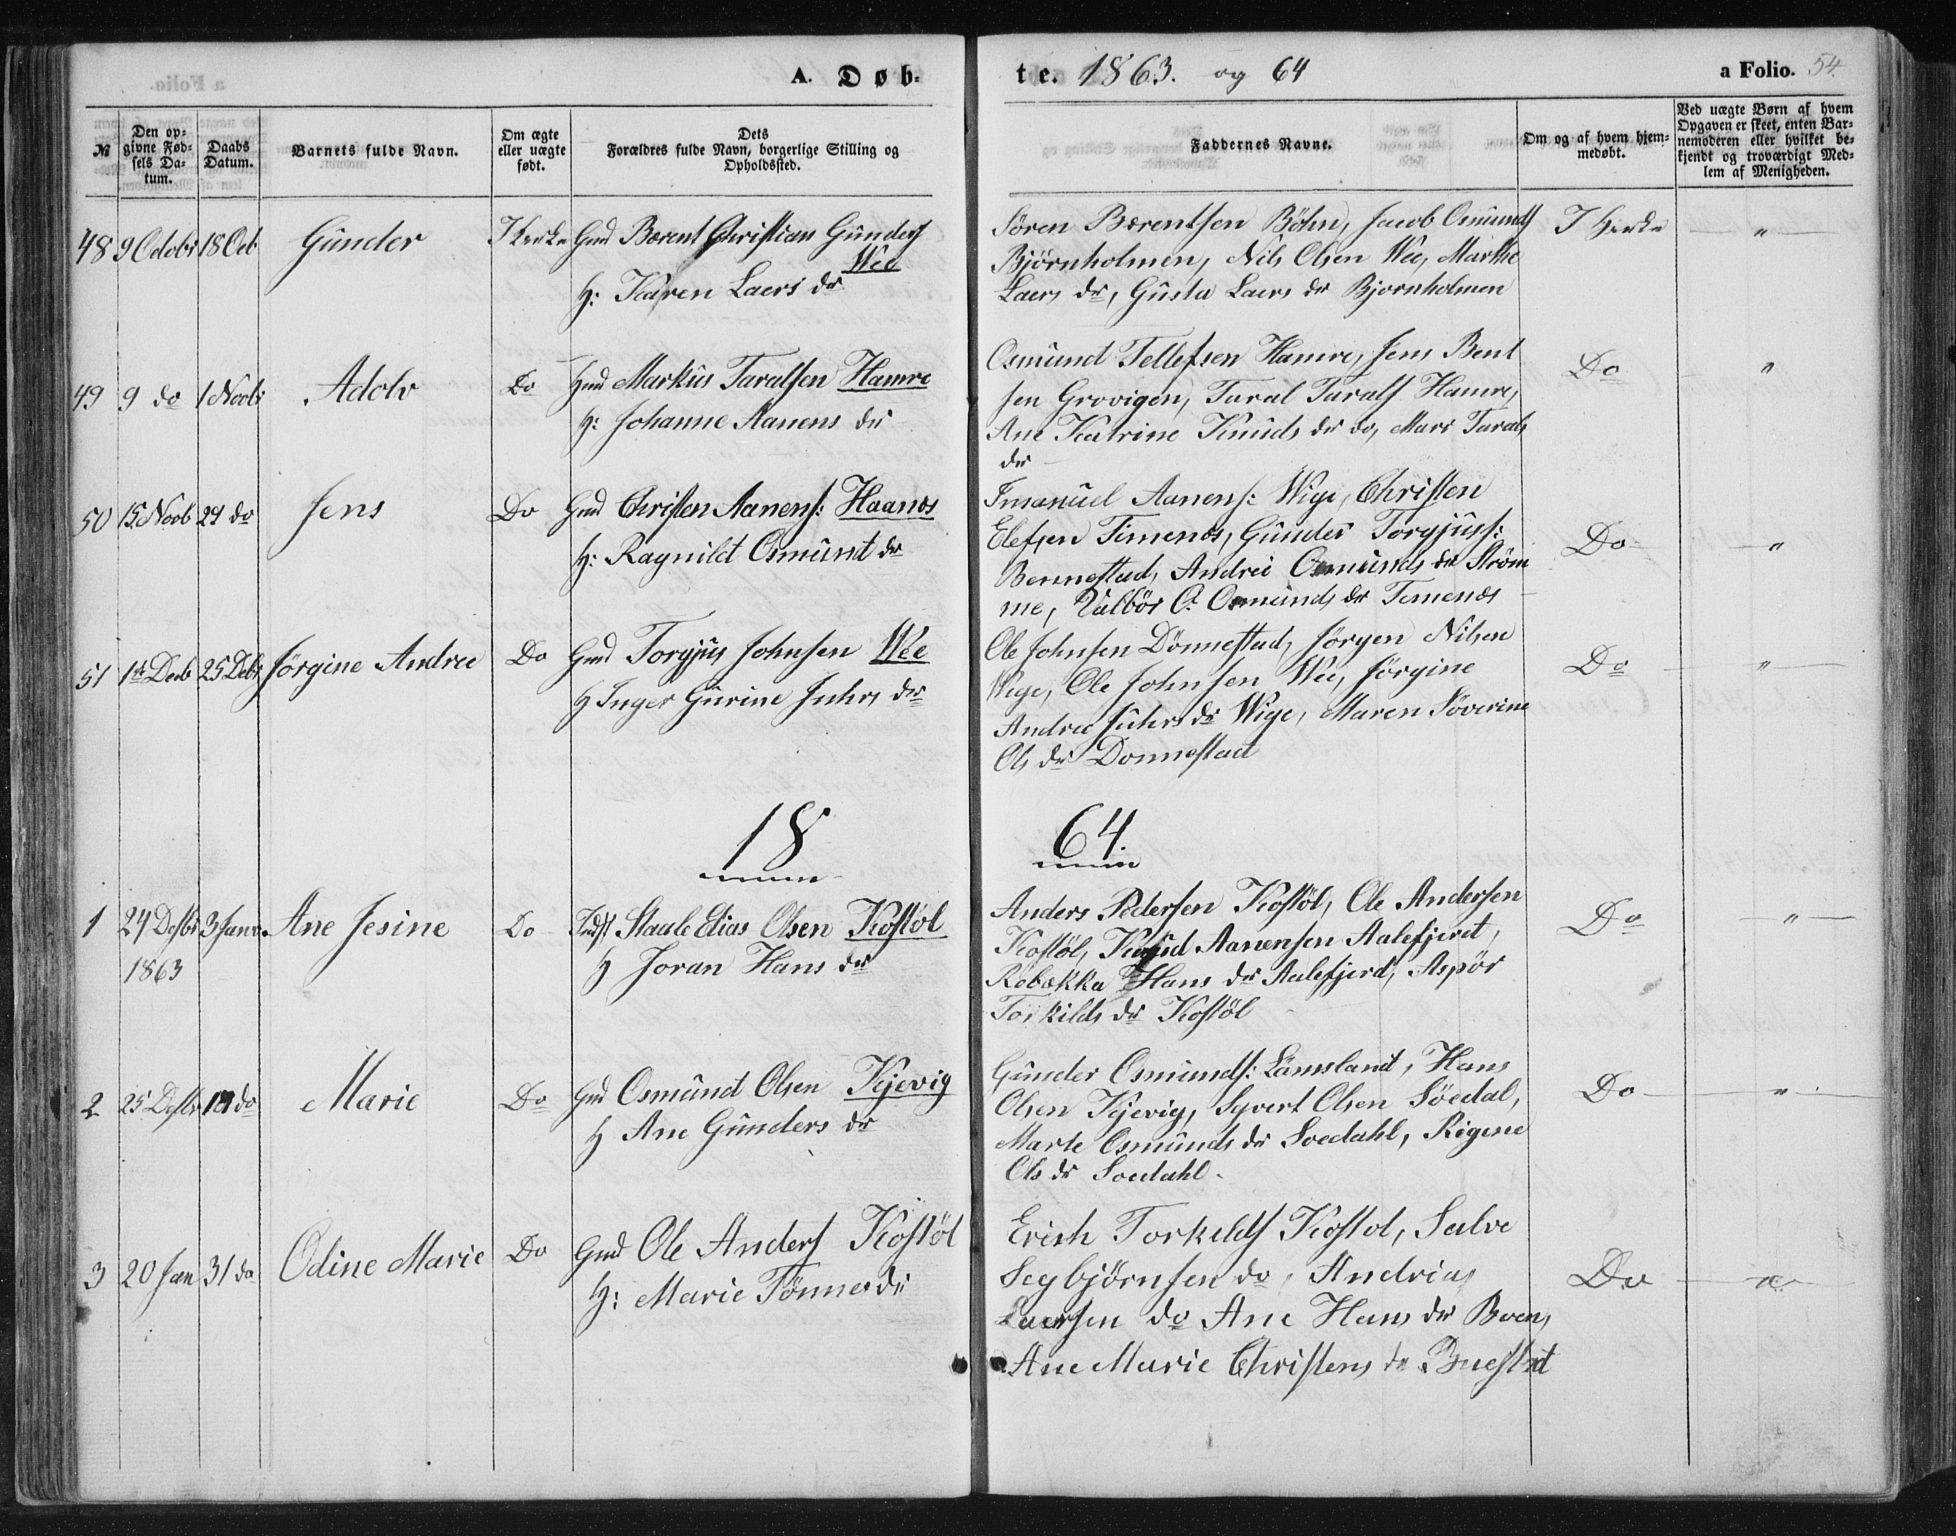 A. Døb-
te. 1863. og 64
a Folio. 54.
№
Den op-
givne Fød-
sels Da-
tum.
Daabs
Datum.
Barnets fulde Navn.
Om ægte
eller uægte
født.
Dets
Forældres fulde Navn, borgerlige Stilling og
Opholdssted.
Faddernes Navne.
Om og af hvem hjem-
medøbt.
Ved uægte Børn af hvem
Opgaven er skeet, enten Bar-
nemoderen eller hvilket be-
kjendt og troværdigt Med-
lem af Menigheden.
48 9 Octobr 18 Oct Gunder Gmd Bærent Christian Gunders
Wee
H: Karen Laers dr
Søren Bærentsen Bøhn, Jacob Osmunds
Bjørnholmen, Nils Olsen Wee, Marthe
Laers dr, Gusta Laers dr Bjornholmen
"
49 9 do 1 Novbr Adolv Do Gmd Markus Taralsen Hamre
H: Johanne Aanens dr
Osmund Tellefsen Hamre, Jens Bent
sen Grovigen, Taral Tarals Hamre,
Ane Katrine Knuds dr do, Mari Tarals
dr
Do "
50 15 Novb 29 do Jens Do Gmd Christen Aanens: Haanes
H: Ragnild Osmunt dr
Imanuel Aanens: Wige, Christen
Elefsen Timenes, Gunder Torgjus:
Bennestad, Andrei Osmunds dr Strøm
me, Valbør O. Osmunds dr Timenes
Do "
51 1te Decb 25 Decbr Jørgine Andrea Do Gmd Torgjus Johnsen Wee
H Inger Gurine Juhrs dr
Ole Johnsen Dönnestad, Jörgen Nilsen
Wige, Ole Johnsen Wee, Jörgine
Andrea Juhrs dr Wige, Maren Söverine
Ols dr Donnestad
Do "
18 64.
1 27 Desbr 3 Janr. Ane Jesine Do Indst Staale Elias Olsen Kostøl
1863
H Joran Hans dr
Anders Pedersen Kostøl, Ole Andersen
Kostøl, Knud Aanensen Aalefjerd,
Rebekka Hans dr Aalefjerd, Aspör
Torkilds dr Kostöl
Do "
2 25 Desbr 10 do Marie Do Gmd Osmund Olsen Kjevig
H Ane Gunders dr
Gunder Osmunds: Lämsland, Hans
Olsen Kjevig, Syvert Olsen Söedal,
Marte Osmunds dr Soedahl, Rigine
Ols dr Soedahl.
Do "
3 20 Jan 31 do Odine Marie Do Gmd Ole Anders Kostøl
H: Marie Tönnes dr
Erich Torkilds Kostol, Salve
Segbjørnsen do, Andrias
Laersen do Ane Hans dr Boen,
Ane Marie Christens dr Buestad
Do "